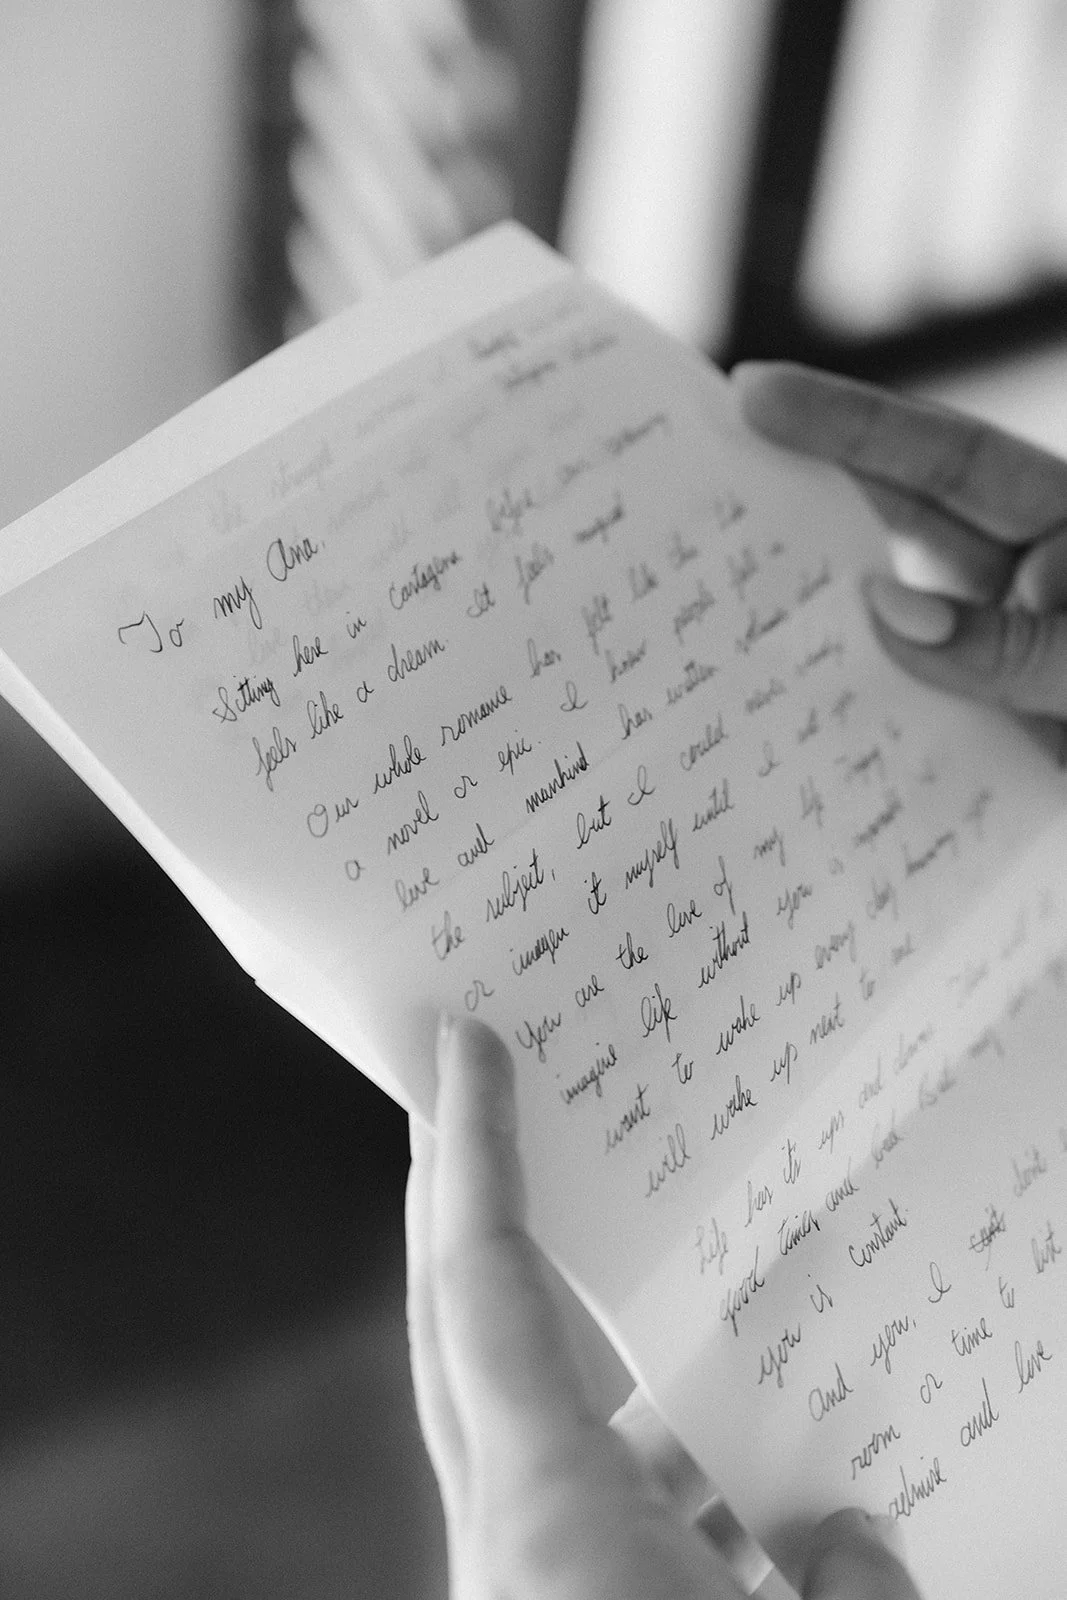 To my Ana,
Sitting here in Cartagena before our wedding
feels like a dream. It feels magical
Our whole romance has felt like the
a novel or epic. I know people fall in
love and mankind has written volumes about
the subject, but I could never really
or imagen it myself until I met you
You are the love of my life
imagine life without you is
want to wake up every day knowing you
will wake up next to me
Life has it's ups and downs
good times and bad. But my
you is constant.
And you, I don't
room or time to list
admire and love